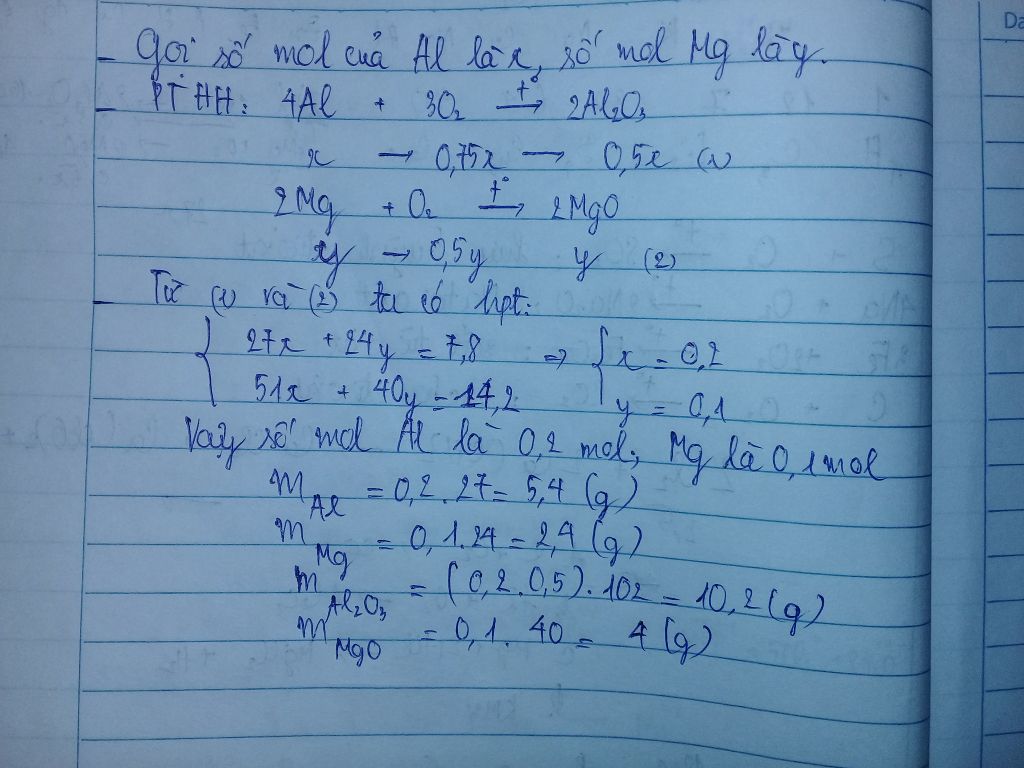 - Gọi số mol của Al là x, số mol Mg là y.
- PTHH: 4Al + 3O₂ →t° 2Al₂O₃
x → 0,75x → 0,5x (1)
2Mg + O₂ →t° 2MgO
y → 0,5y y (2)
- Từ (1) và (2) ta có hpt:
{ 27x + 24y = 7,8 ⇒ { x = 0,2
51x + 40y = 14,2 y = 0,1
Vậy số mol Al là 0,2 mol, Mg là 0,1 mol
m Al = 0,2.27 = 5,4 (g)
m Mg = 0,1.24 = 2,4 (g)
m Al₂O₃ = (0,2.0,5).102 = 10,2 (g)
m MgO = 0,1.40 = 4 (g)
Da